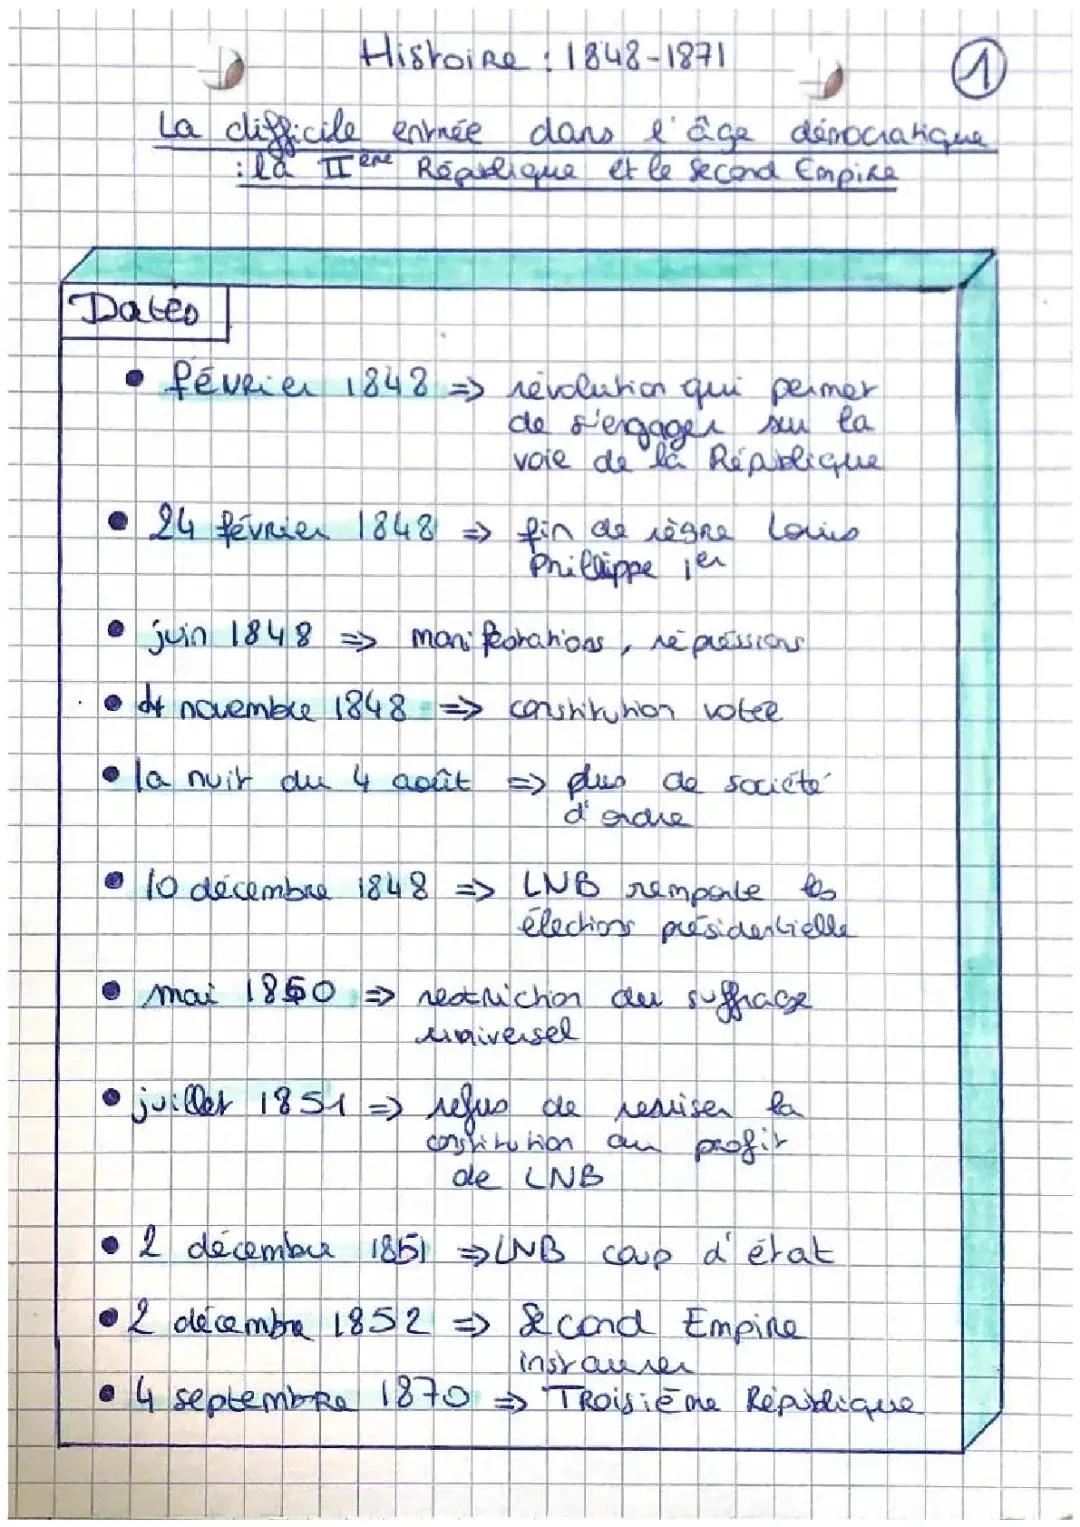 Histoire : 1848-1871
1
La difficile entrée dans l'âge démocratique
: la IIème République et le Second Empire
Dates
• février 1848 => révolution qui permet
de s'engager sur la
voie de la République
• 24 février 1848 => fin de règne Louis
Phillippe 1er
• juin 1848 => manifestations, répressions
• novembre 1848 => constitution votée
• la nuit du 4 août => plus de société
d'ordre
• 10 décembre 1848 => LNB remporte les
élections présidentielle
• mai 1850 => restriction du suffrage
universel
• juillet 1851 => refus de reviser la
constitution au profit
de LNB
• 2 décembre 1851 => LNB coup d'état
• 2 décembre 1852 => Second Empire
instaurer
• 4 septembre 1870 => Troisième République